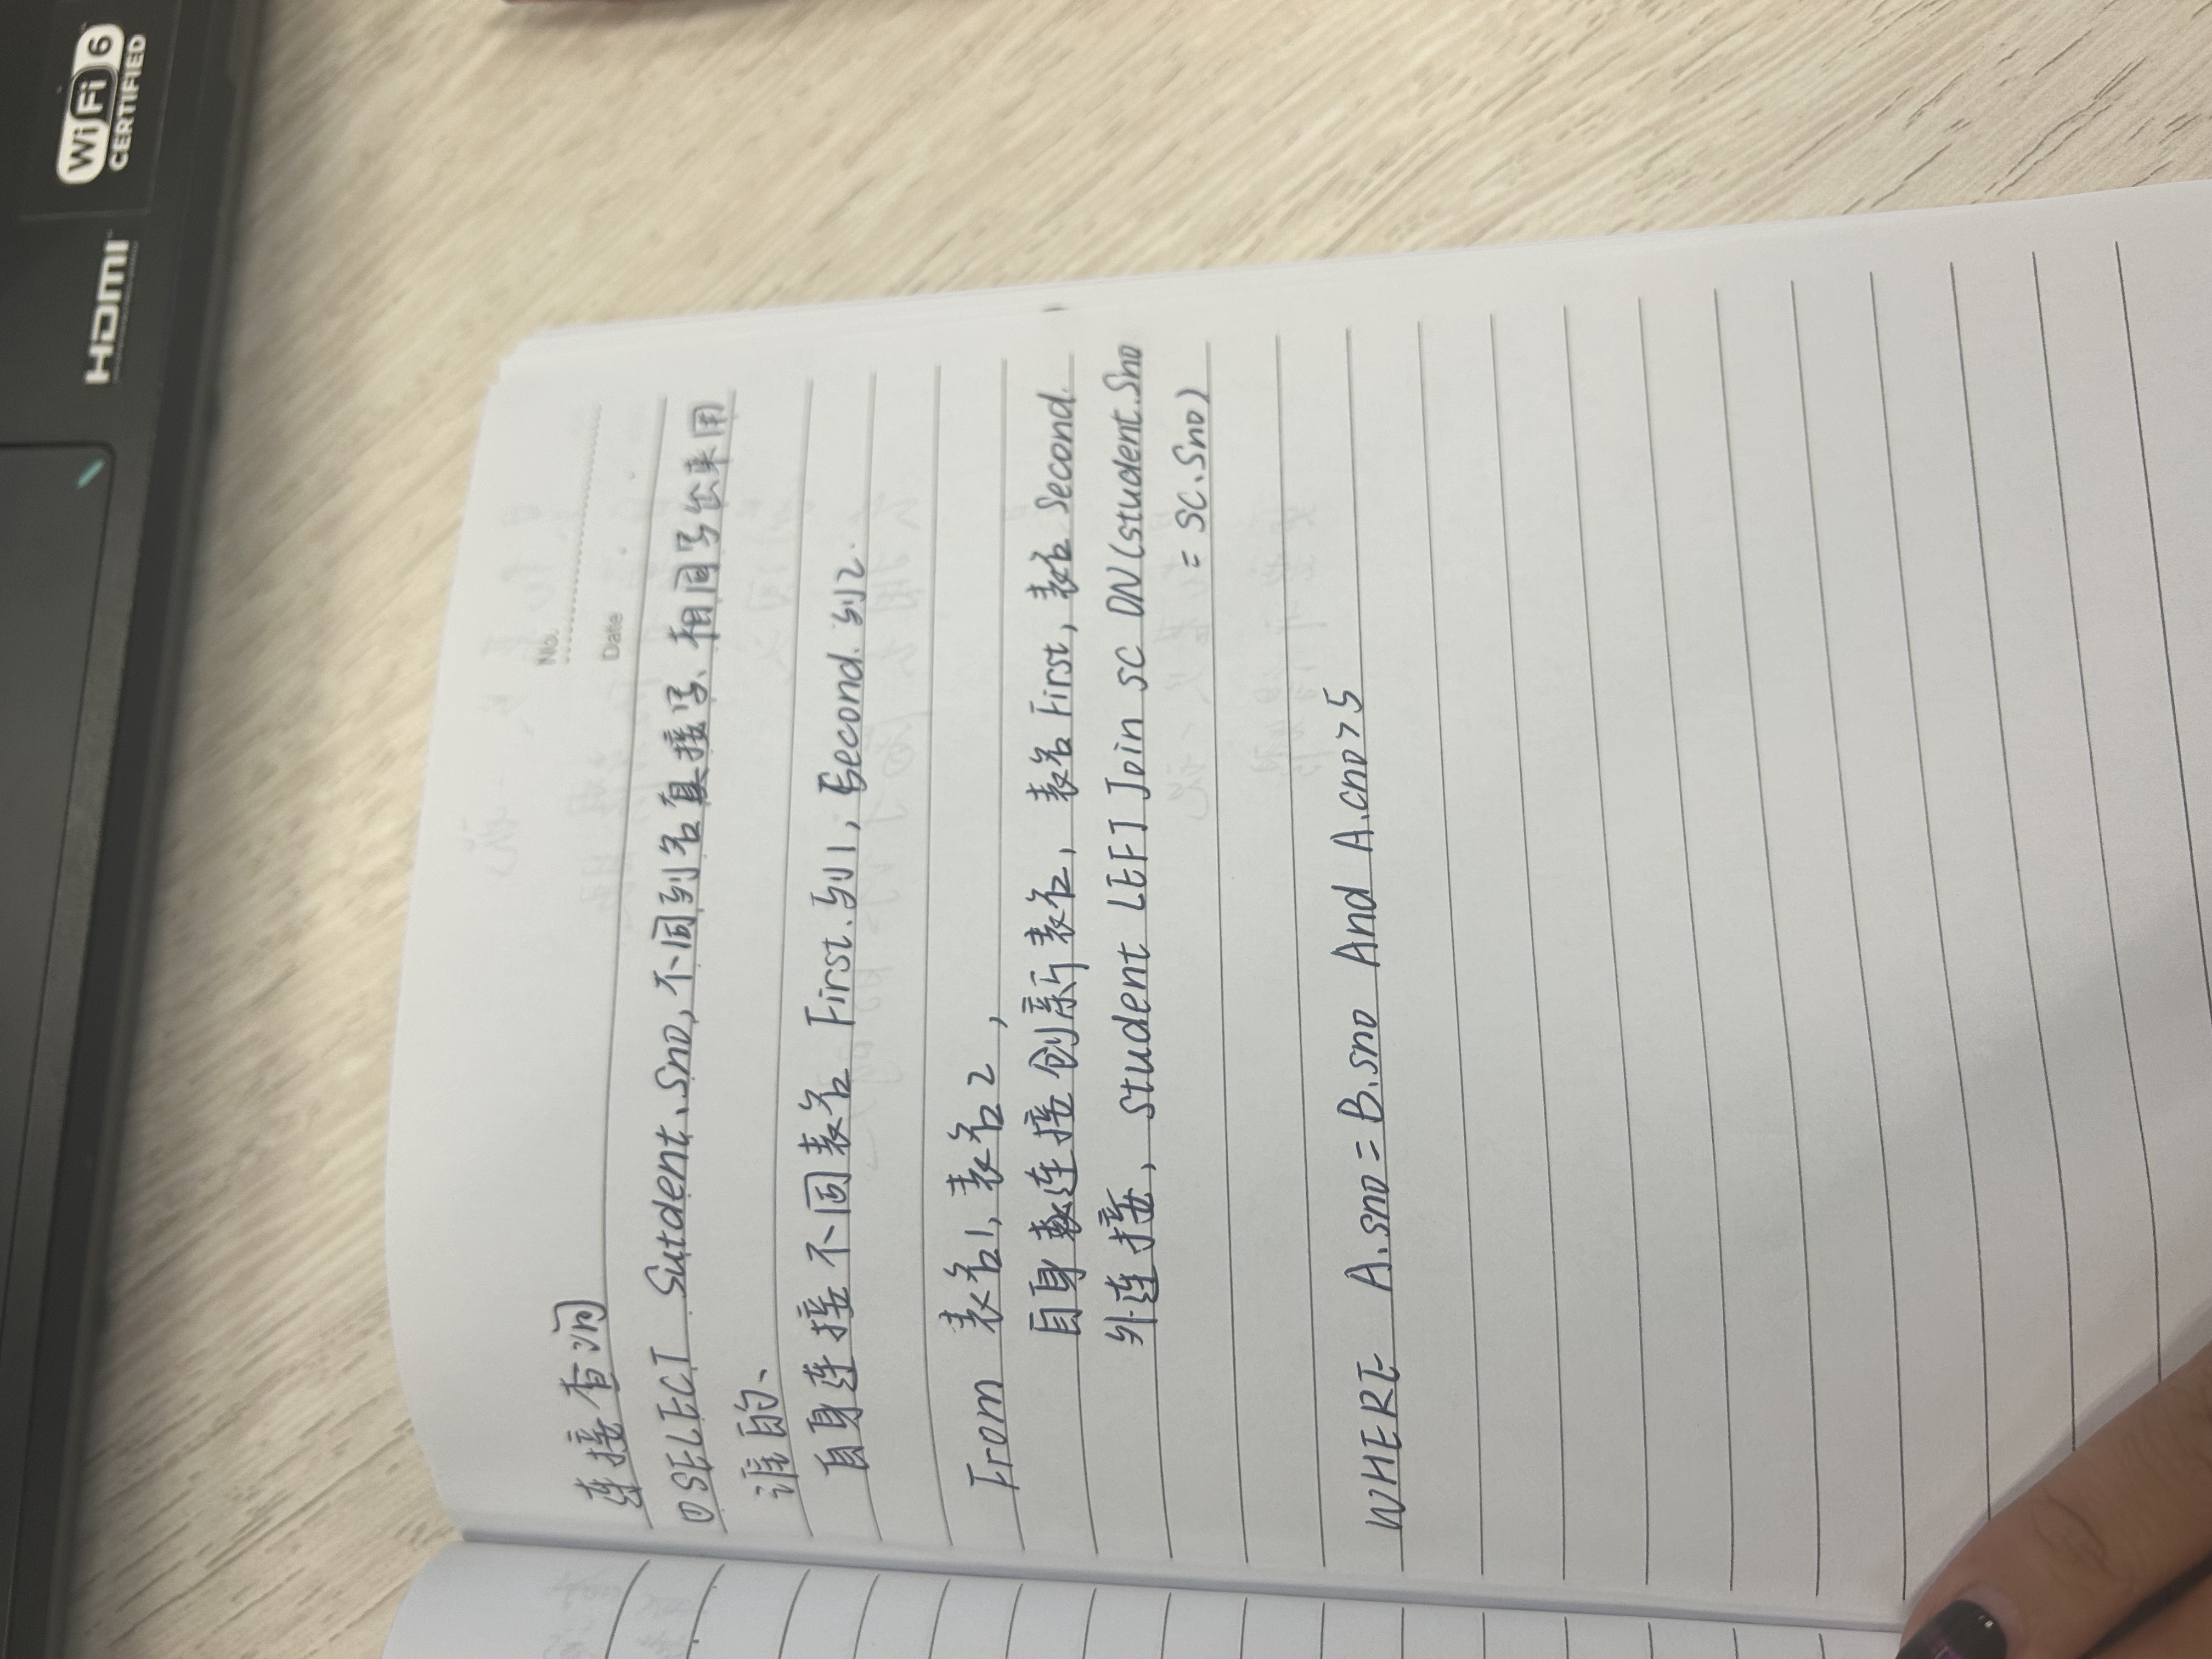 HDMI
WiFi 6
CERTIFIED
No.
Date
连接查询
①SELECT Sutdent.Sno,不同列名直接写、相同写出来用
谁的、
自身连接不同表名 First.列1, Second.列2.
From 表名1,表名2,
自身连接创新表名, 表名First,表名Second.
外连接, student LEFT Join SC ON(student.Sno
= SC.Sno)
WHERE A.sno=B.sno And A.cno>5